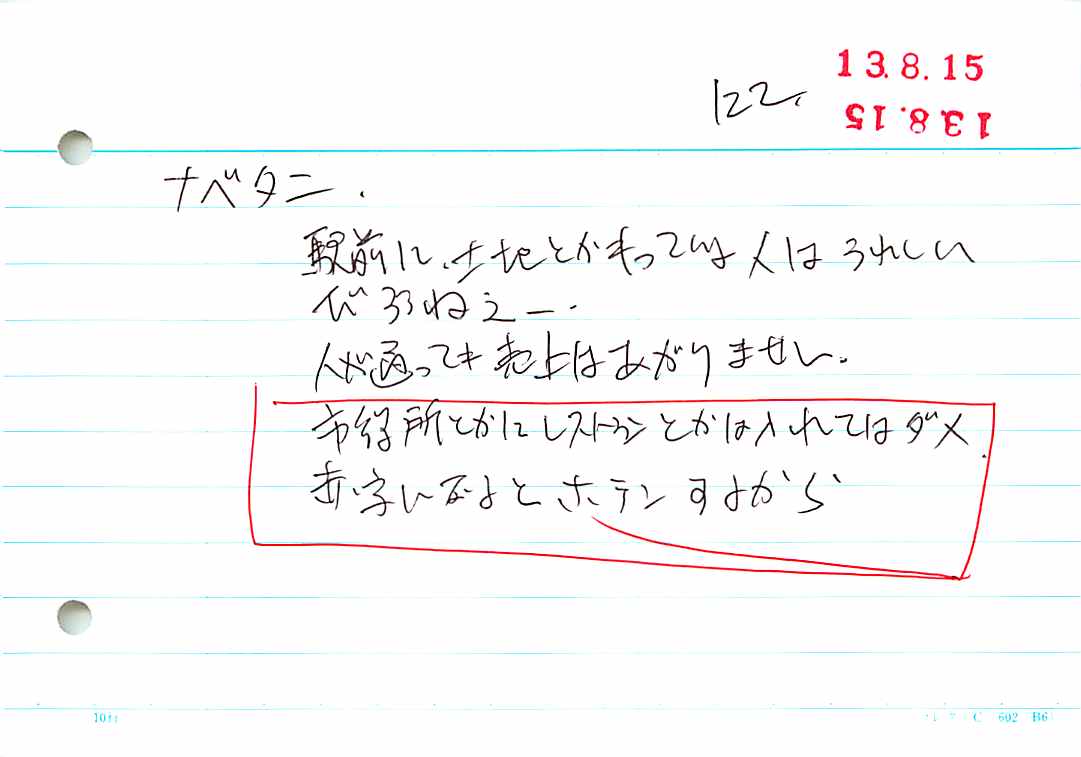 13.8.15
122.
13.8.15
ナベタニ.
駅前に、土地とかもっている人はうれしい
でしょうねえー.
人が通っても売上はあがりません.
市役所とかにレストランとかは入れてはダメ.
赤字になるとホテンするから
10行
C 602 B6